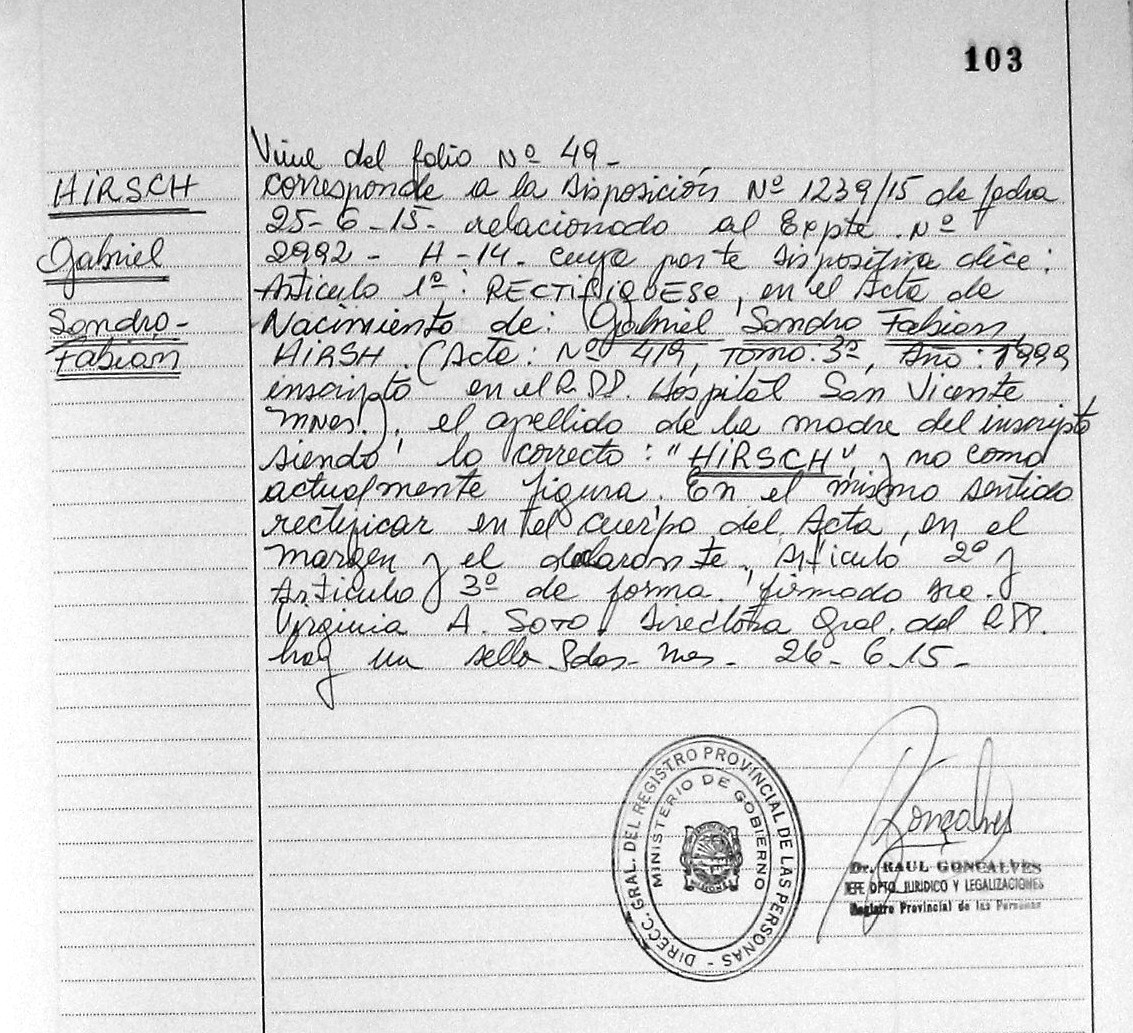 103
Viene del folio Nº 49_
HIRSCH
Gabriel
Sandro-
Fabian
corresponde a la Disposición Nº 1239/15 de fecha
25-6-15- relacionado al Expte. Nº
2992- H-14- cuya parte dispositiva dice:
Articulo 1º: RECTIFIQUESE, en el Acta de
Nacimiento de: Gabriel Sandro Fabian
HIRSH. (Acta: Nº 419, Tomo: 3º, Año: 1999
inscripto en el R.PP. Hospital San Vicente
MNes.), el apellido de la madre del inscripto
siendo lo correcto: "HIRSCH" y no como
actualmente figura. En el mismo sentido
rectificar en el cuerpo del Acta, en el
margen y el declarante. Articulo 2º y
Articulo 3º de forma. firmado Dra.
Virginia A. Soto. Directora Gral. del R.PP.
hay un sello Pdas-Mnes- 26-6-15-
DIRECC. GRAL. DEL REGISTRO PROVINCIAL DE LAS PERSONAS -
MINISTERIO DE GOBIERNO
MISIONES
Gonçalves
Dr. RAUL GONCALVES
JEFE DPTO. JURIDICO Y LEGALIZACIONES
Registro Provincial de las Personas